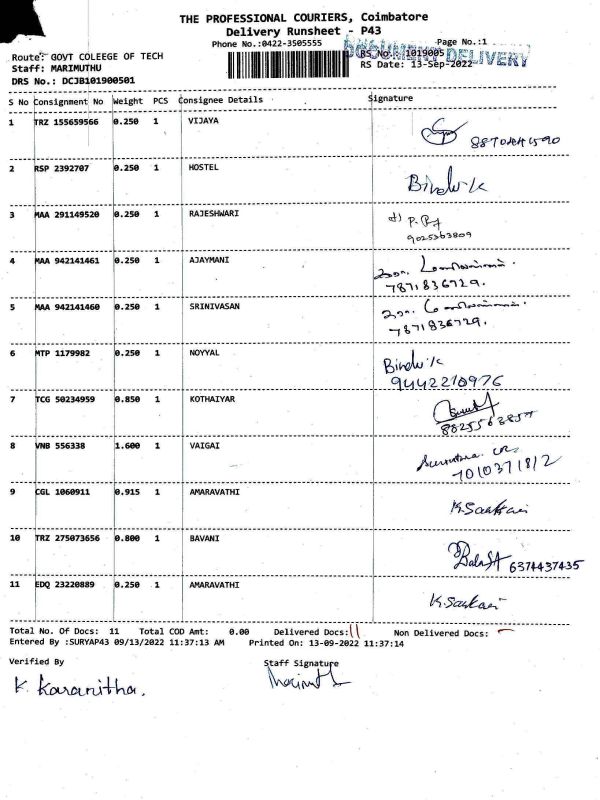 THE PROFESSIONAL COURIERS, Coimbatore
Delivery Runsheet - P43
Phone No.:0422-3505555 Page No.:1
DOCUMENT DELIVERY
Route: GOVT COLLEGE OF TECH RS No.: 1019005
Staff: MARIMUTHU RS Date: 13-Sep-2022
DRS No.: DCJB101900501
S No Consignment No Weight PCS Consignee Details Signature
1 TRZ 155659566 0.250 1 VIJAYA
2 RSP 2392707 0.250 1 HOSTEL
3 MAA 291149520 0.250 1 RAJESHWARI
9025363809
4 MAA 942141461 0.250 1 AJAYMANI
7871836729.
5 MAA 942141460 0.250 1 SRINIVASAN
7871836729.
6 MTP 1179982 0.250 1 NOYYAL
9442210976
7 TCG 50234959 0.850 1 KOTHAIYAR
8 VNB 556338 1.600 1 VAIGAI
7010371812
9 CGL 1060911 0.915 1 AMARAVATHI
10 TRZ 275073656 0.800 1 BAVANI
6374437435
11 EDQ 23220889 0.250 1 AMARAVATHI
Total No. Of Docs: 11 Total COD Amt: 0.00 Delivered Docs: 11 Non Delivered Docs: -
Entered By :SURYAP43 09/13/2022 11:37:13 AM Printed On: 13-09-2022 11:37:14
Verified By Staff Signature
K. Karanitha.